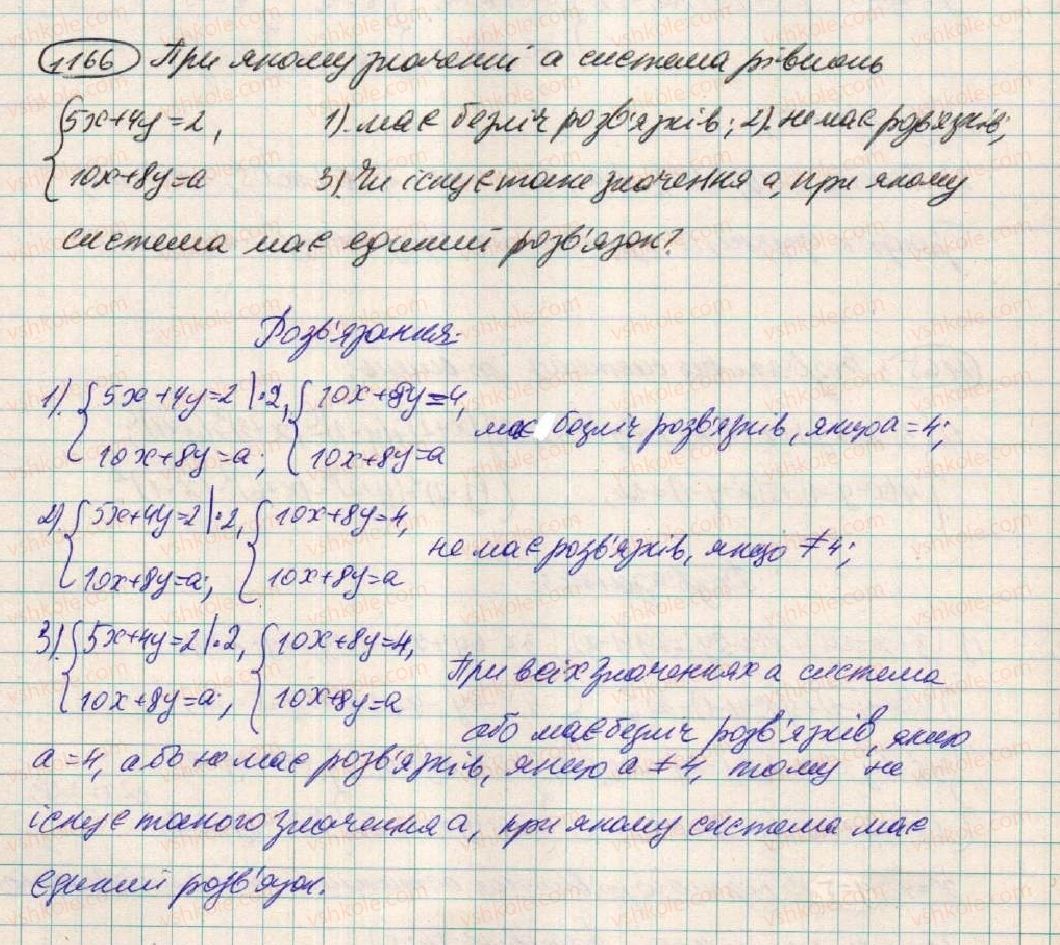 1166 При якому значенні а система рівнянь
{5x+4y=2, 1). має безліч розв'язків; 2). не має розв'язків;
10x+8y=a 3). Чи існує таке значення а, при якому
система має єдиний розв'язок?
Розв'язання:
1). {5x+4y=2 |·2, {10x+8y=4,
10x+8y=a; 10x+8y=a має безліч розв'язків, якщо a=4;
2). {5x+4y=2 |·2, {10x+8y=4,
10x+8y=a; 10x+8y=a не має розв'язків, якщо ≠4;
3). {5x+4y=2 |·2, {10x+8y=4,
10x+8y=a; 10x+8y=a При всіх значеннях а система
або має безліч розв'язків, якщо
a=4, або не має розв'язків, якщо a≠4, тому не
існує такого значення а, при якому система має
єдиний розв'язок.
vshkole.com